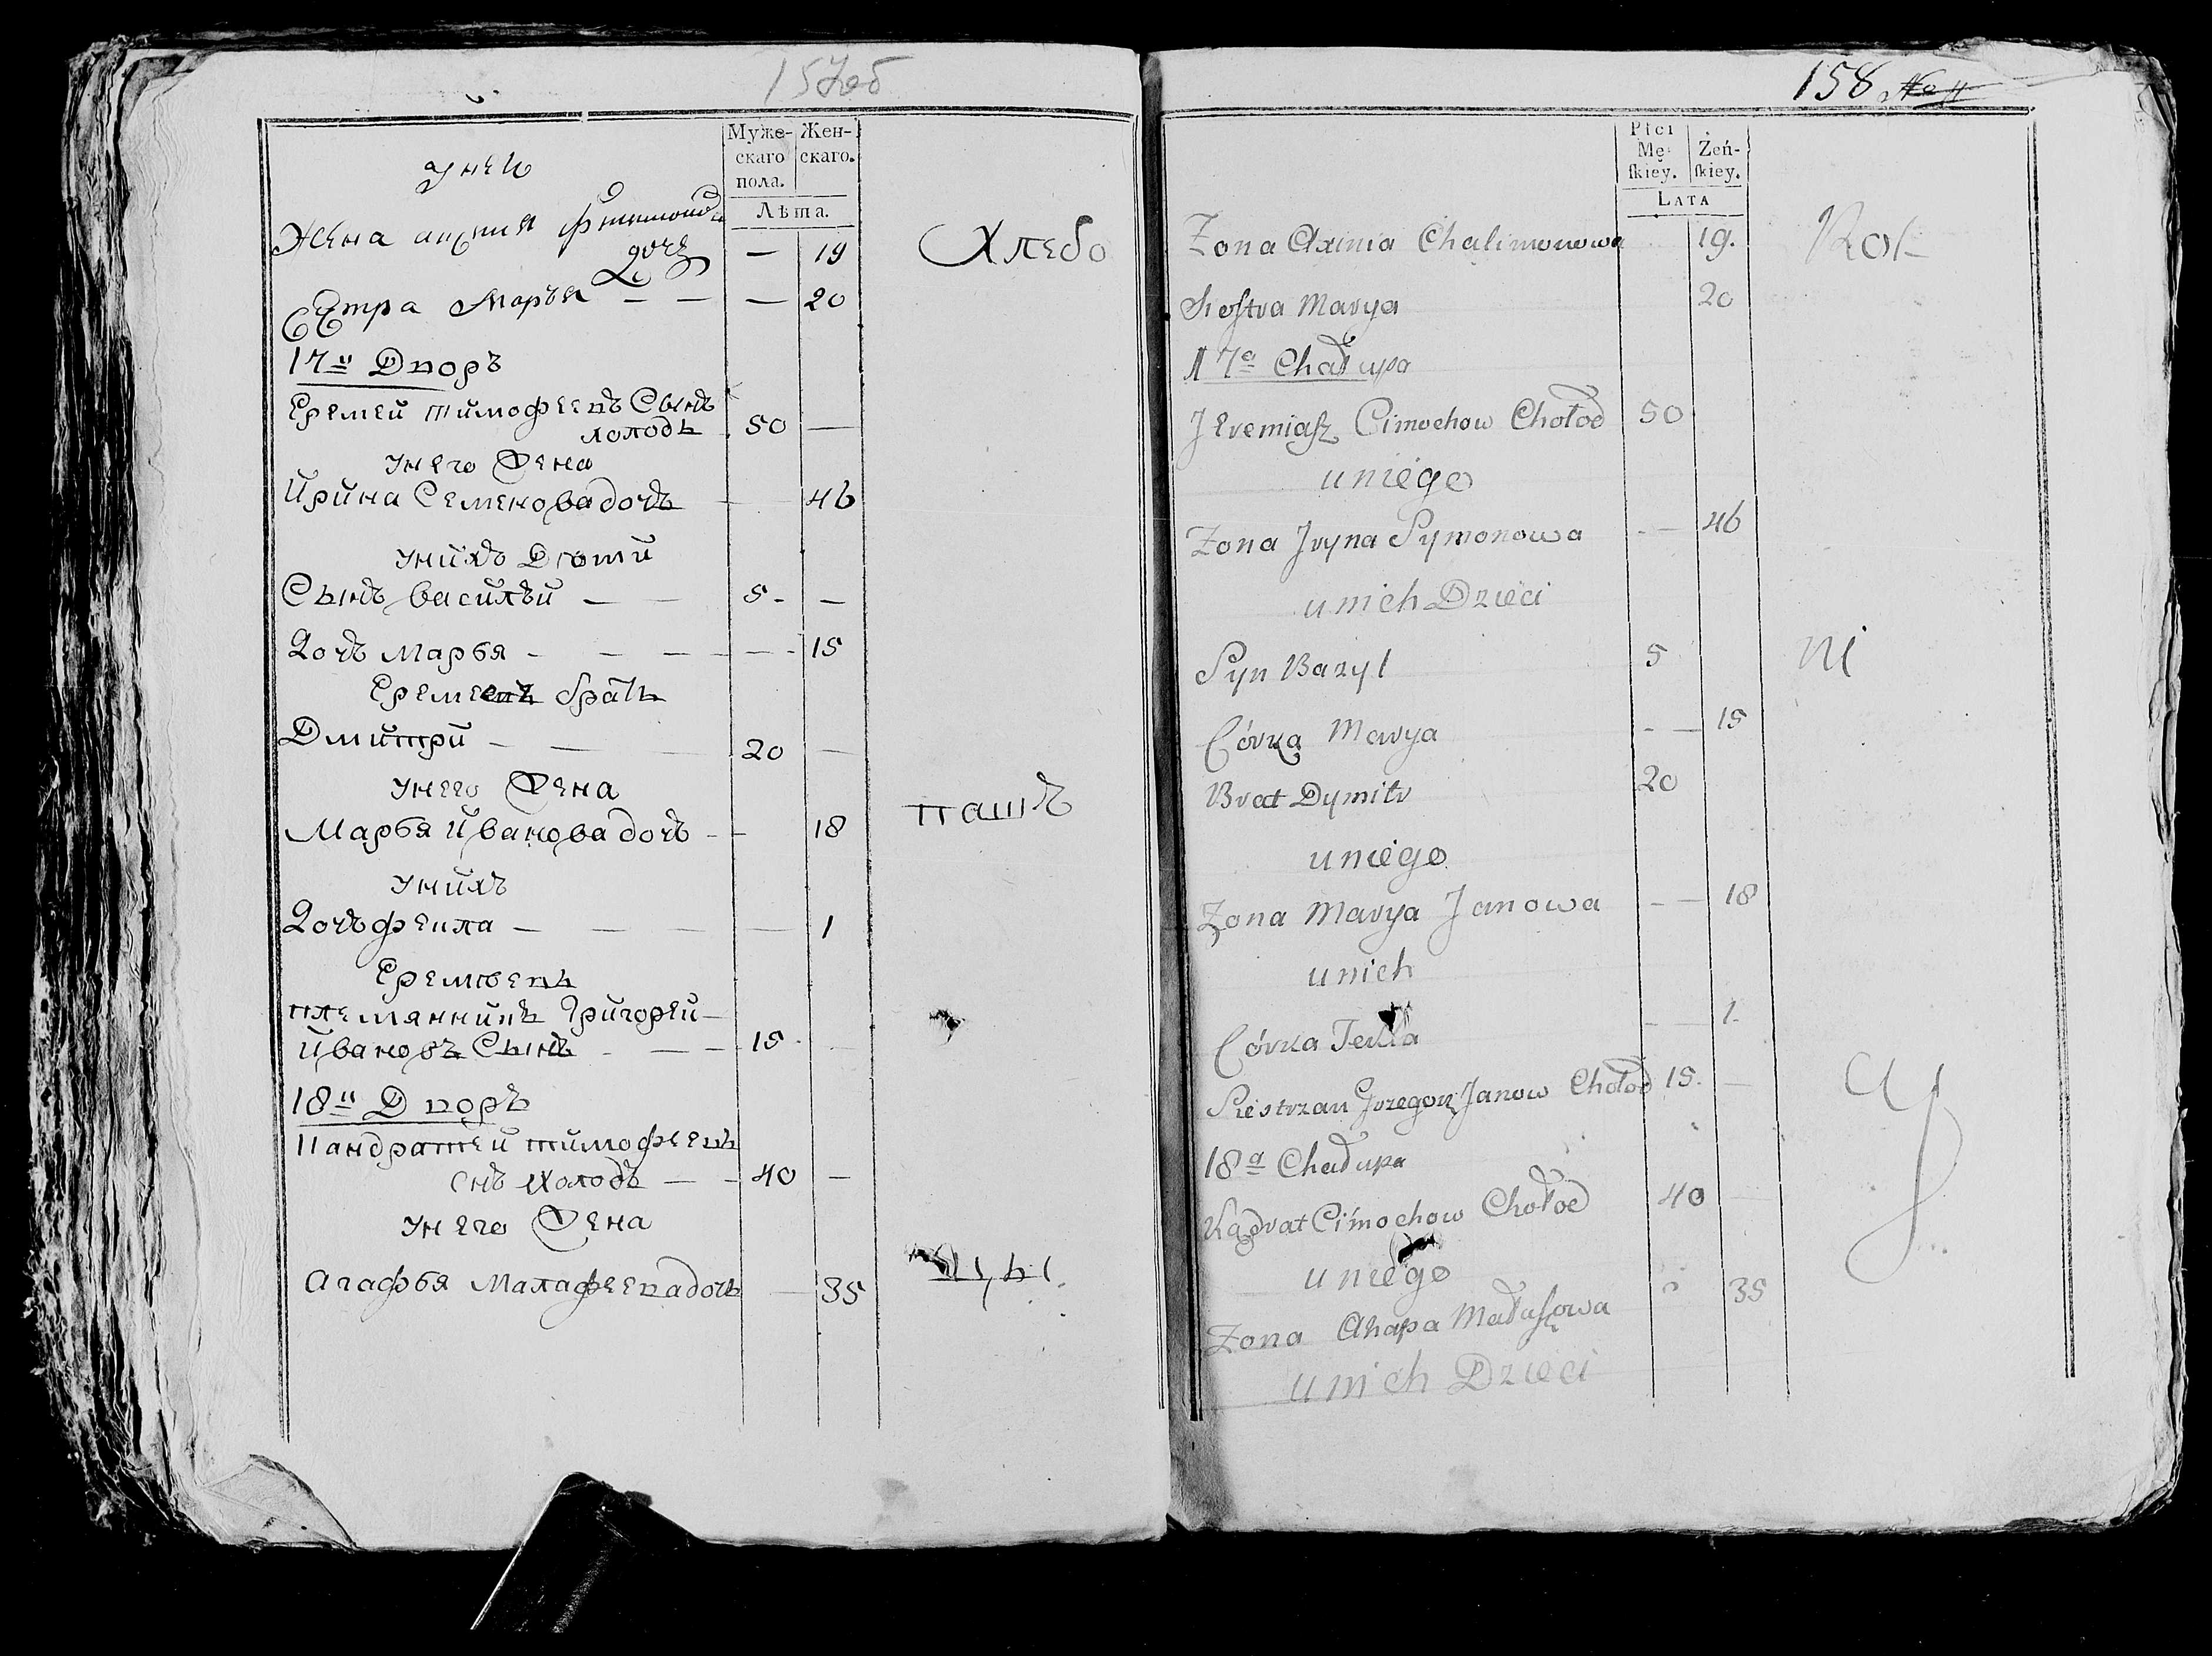 157об
Муже-
скаго
пола.
Жен-
скаго.
Лѣта.
у ней
Жена аксиния
дочь — 19
Хлебо
Сестра Марья — — — 20
17й Дворъ
Еремей тимофеевъ Сынъ
холодъ 50 —
унего Жена
Ирина Семенова дочь — 46
унихъ Дѣти
Сынъ василѣй — — 5 - —
Дочь Марья - — — — 15
Еремеевъ братъ
Дмитрй — — — 20 —
унего Жена
пашъ
Марья Иванова дочь - — 18
унихъ
Дочь фекла — — — — 1
Еремѣевъ
племянникъ Григорей —
Ивановъ Сынъ - — — 15 - —
18й Дворъ
Кандратей тимофеевъ
снъ Холодъ — — 40 —
унего Жена
Агафья Малафеева дочь — 35
158
Płci
Mę-
ſkiey.
Żeń-
ſkiey.
LATA
Zona Axinia Chalimonowa 19.
Rol-
Siostra Marya 20
17a Chałupa
Jeremiaſz Cimochow Chołod 50
uniego
Zona Jryna Symonowa - — 46
unich Dzieci
Syn Bazyl 5
ni
Córka Marya - — 15
Brat Dymitr 20
uniego
Zona Marya Janowa — — 18
unich
Córka Tekla — — 1.
Siestrzan Grzegorz Janow Chołod 15. —
cy
18a Chałupa
Kądrat Cimochow Chołod 40 —
uniego
Zona Ahapa 35
unich Dzieci